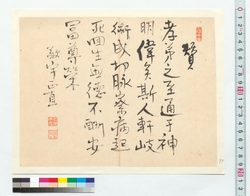 贊
孝弟之至通于神
明偉矣斯人軒岐
術成切脉察病起
死回生無德不酬安
富尊榮